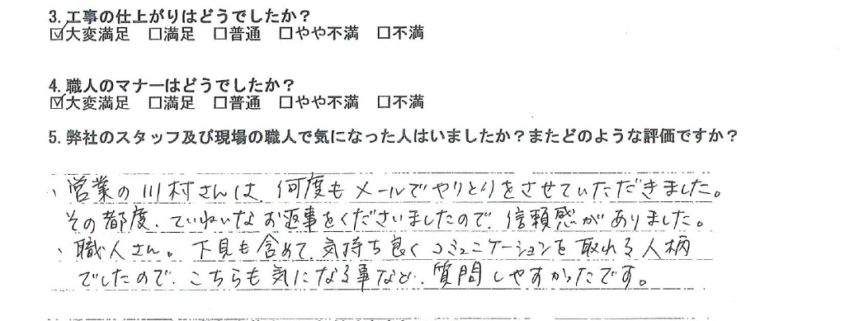 3. 工事の仕上がりはどうでしたか？
☑大変満足 □満足 □普通 □やや不満 □不満
4. 職人のマナーはどうでしたか？
☑大変満足 □満足 □普通 □やや不満 □不満
5. 弊社のスタッフ及び現場の職人で気になった人はいましたか？またどのような評価ですか？
、営業の川村さんは、何度もメールでやりとりをさせていただきました。
その都度、ていねいなお返事をくださいましたので、信頼感がありました。
、職人さん。下見も含めて、気持ち良くコミュニケーションを取れる人柄
でしたので、こちらも気になる事など、質問しやすかったです。